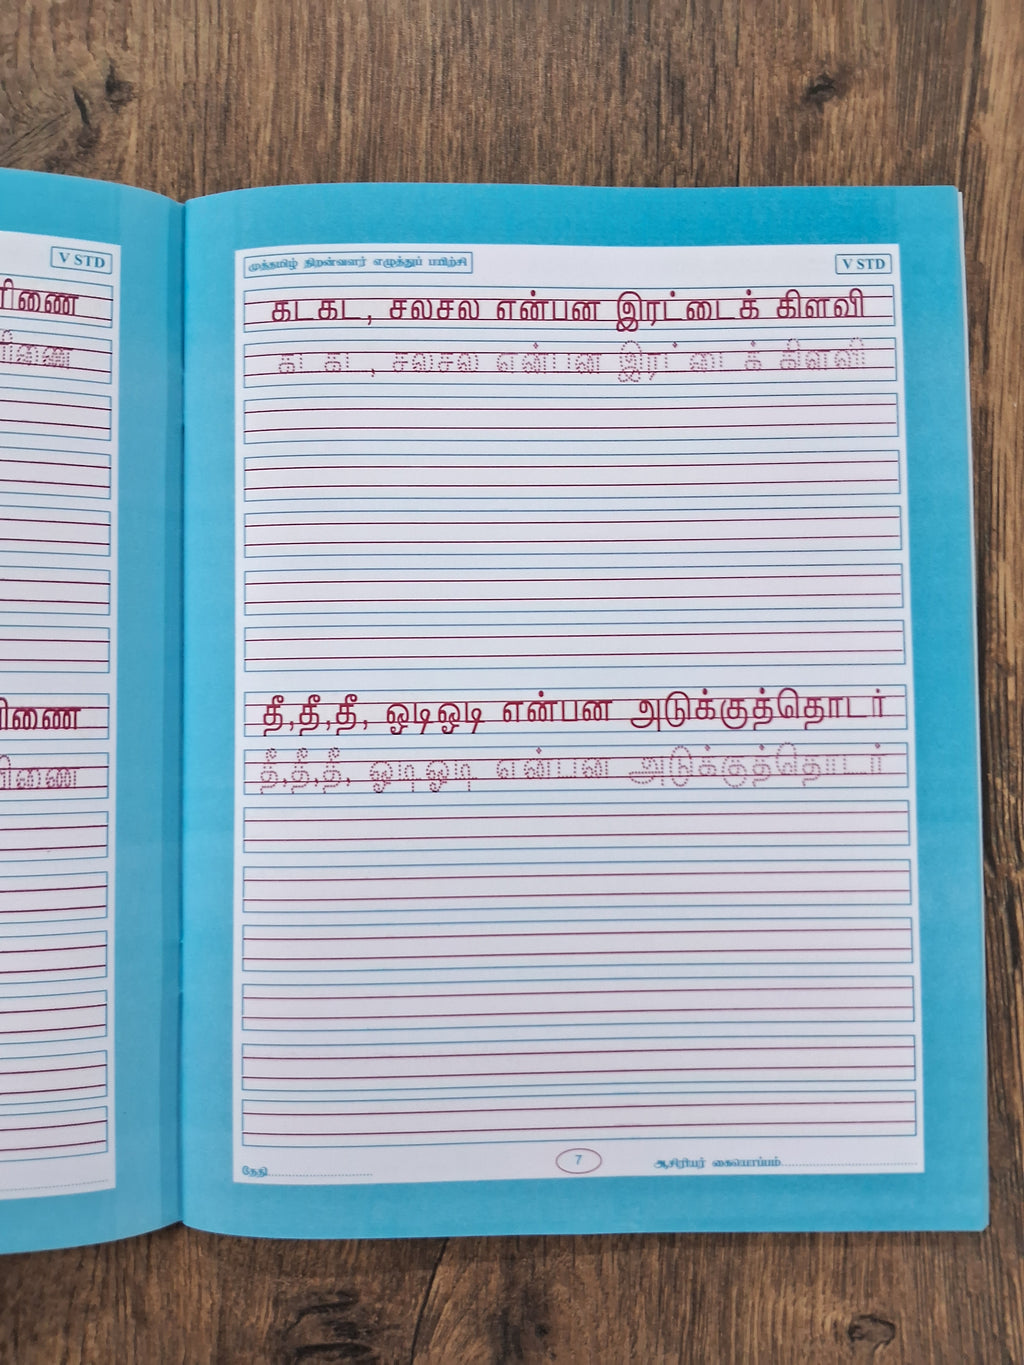 V STD
ரிணை
ரிணை
ரிணை
ரிணை
முத்தமிழ் திறன்வளர் எழுத்துப் பயிற்சி
V STD
கடகட, சலசல என்பன இரட்டைக் கிளவி
கடகட, சலசல என்பன இரட்டைக் கிளவி
தீ,தீ,தீ, ஓடிஓடி என்பன அடுக்குத்தொடர்
தீ,தீ,தீ, ஓடிஓடி என்பன அடுக்குத்தொடர்
தேதி..............................
7
ஆசிரியர் கையொப்பம்..............................